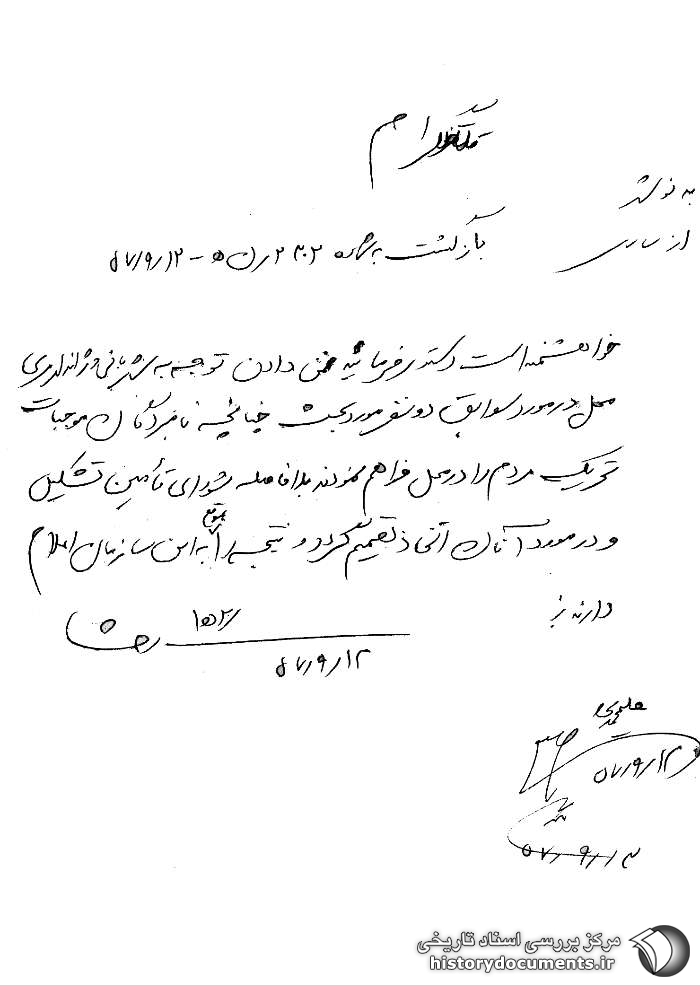 تلگرام
به نوشهر
از ساری
بازگشت به شماره ۲۳۰۲ / ن ه - ۵۷/۹/۱۲
خواهشمند است دستور فرمائید ضمن دادن توجه به شهربانی و ژاندارمری
محل در مورد سوابق دو نفر مورد بحث چنانچه نامبردگان موجبات
تحریک مردم را در محل فراهم نمودند بلافاصله شورای تأمین تشکیل
و در مورد آنان اتخاذ تصمیم گردد و نتیجه را بموقع به این سازمان اعلام
دارند
۵۷/۹/۱۲
۵۷/۹/۱۲
۵۷/۹/۱۳
مرکز بررسی اسناد تاریخی
historydocuments.ir